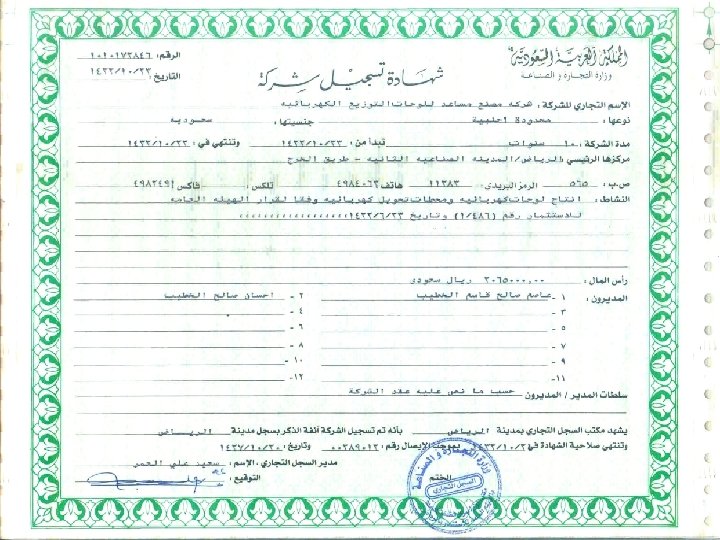 المملكة العربية السعودية
وزارة التجارة و الصناعة
شهادة تسجيل شركة
الرقم: ١٠١٠١٧٣٨٤٦
التاريخ: ١٤٢٢/١٠/٢٣
الإسم التجاري للشركة: شركه مصنع مساعد للوحات التوزيع الكهربائيه
نوعها: محدودة اجنبية جنسيتها: سعوديه
مدة الشركة: ١٠ سنوات تبدأ من: ١٤٢٢/١٠/٢٣ وتنتهي في: ١٤٣٢/١٠/٢٣
مركزها الرئيسي: الرياض/المدينه الصناعيه الثانيه - طريق الخرج
ص.ب: ٥٦٥ الرمز البريدي: ١١٣٨٣ هاتف ٤٩٨٤٠٦٣ تلكس: فاكس: ٤٩٨٢٤٩١
النشاط: انتاج لوحات كهربائيه ومحطات تحويل كهربائيه وفقا لقرار الهيئه العامه
للاستثمار رقم (١/٤٨٦) وتاريخ ١٤٢٢/٦/٢٣
رأس المال: ٣٠٦٥٠٠٠,٠٠ ريال سعودى
المديرون: ١ - عاصم صالح قاسم الخطيب ٢ - احسان صالح الخطيب
٣ - ٤ -
٥ - ٦ -
٧ - ٨ -
٩ - ١٠ -
١١- ١٢-
سلطات المدير / المديرون: حسبما نص عليه عقد الشركة
يشهد مكتب السجل التجاري بمدينة الرياض بأنه تم تسجيل الشركة آنفة الذكر بسجل مدينة الرياض
وتنتهي صلاحية الشهادة في بموجب الإيصال رقم: ٠٠٣٨٩٠١٢ وتاريخ:
مدير السجل التجاري: الإسم: سعيد علي العمر
الختم التوقيع:
السجل التجاري